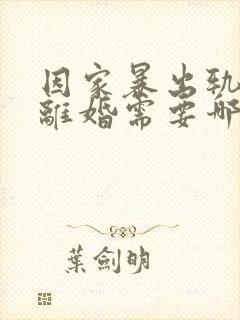 因家暴出轨
離婚需要哪
葉劍明